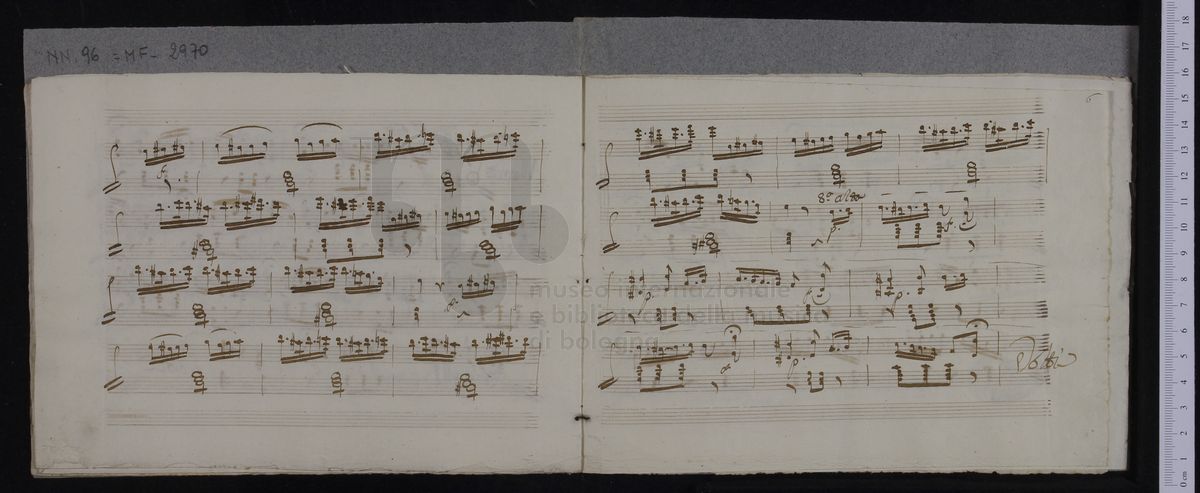 NN. 96 = MF - 2970
8ª alta
museo internazionale
e biblioteca della musica
di bologna
Volti
18 17 16 15 14 13 12 11 10 9 8 7 6 5 4 3 2 1 0 cm